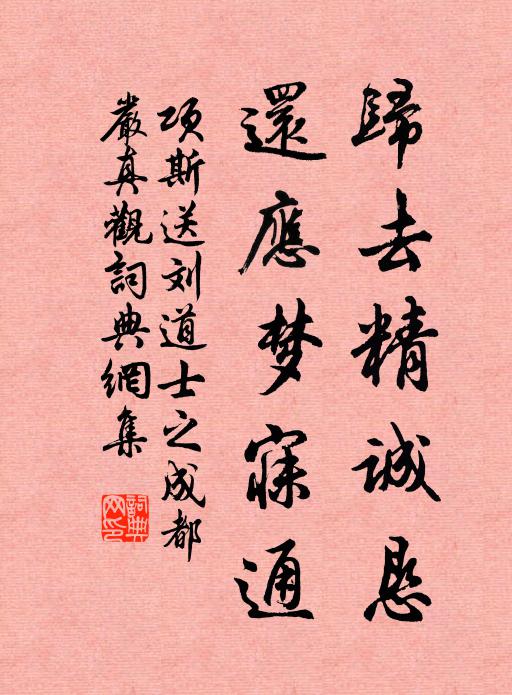 歸去精誠恳
還應梦寐通
项斯送刘道士之成都
嚴真觀詞典網集
詞典
网印